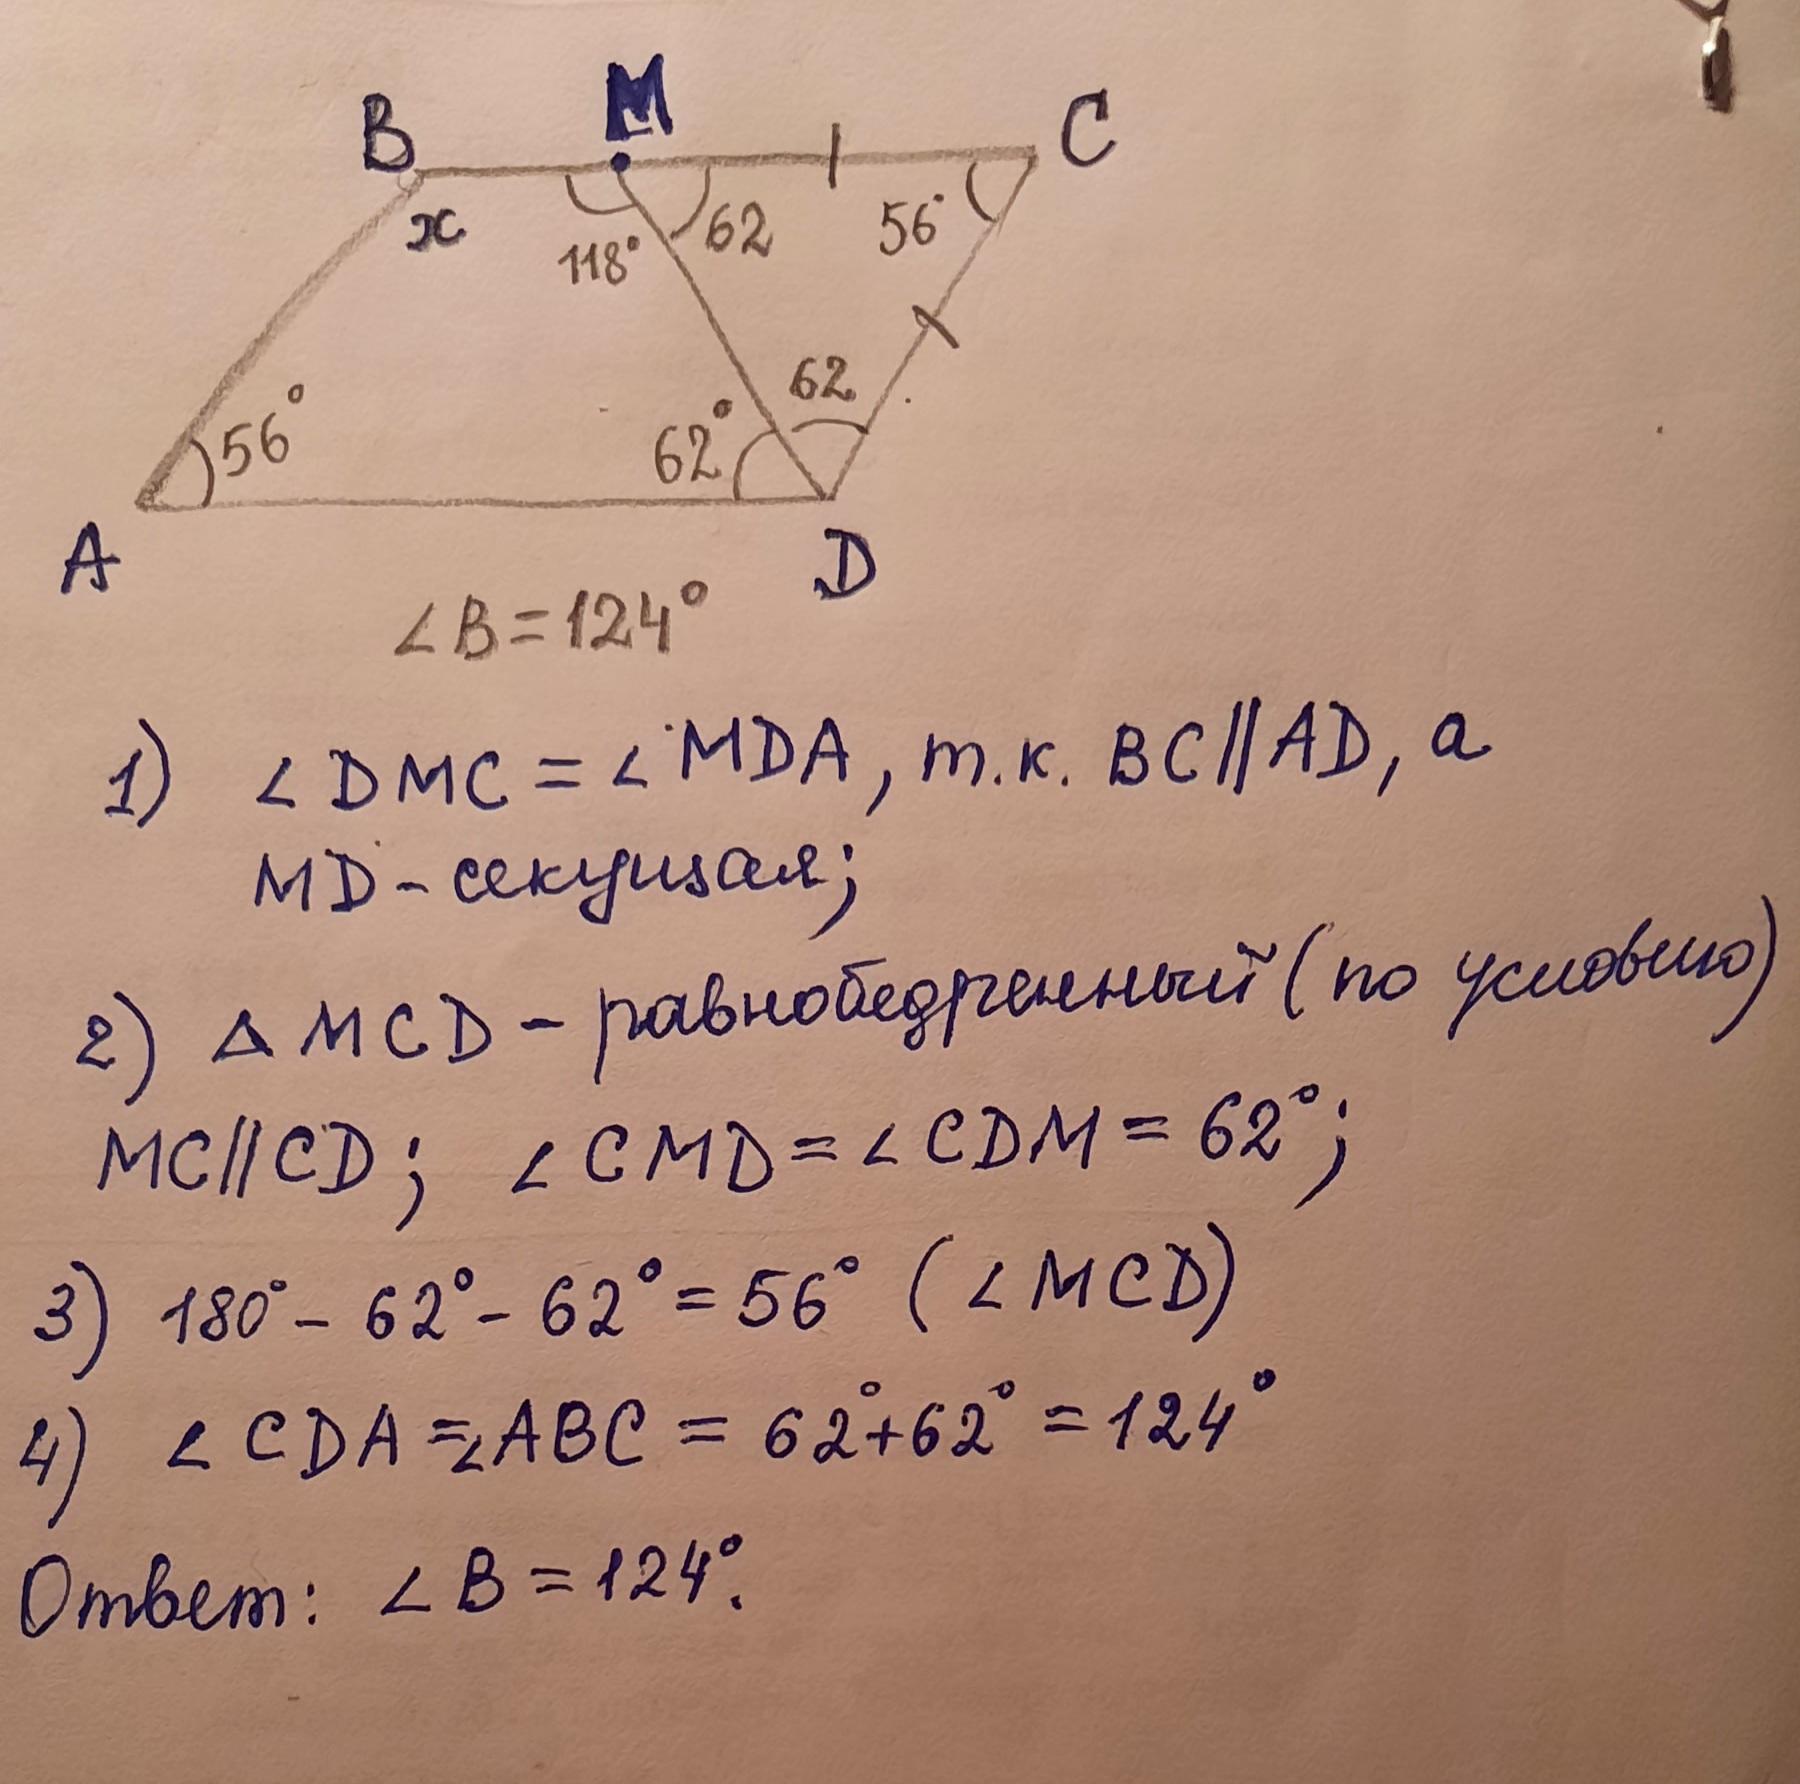 B M C
x 118° 62 56°
62
56° 62°
A D
∠B=124°
1) ∠DMC=∠MDA, т.к. BC||AD, а
MD-секущая;
2) △MCD-равнобедренный (по условию)
MC||CD; ∠CMD=∠CDM=62°;
3) 180°-62°-62°=56° (∠MCD)
4) ∠CDA=∠ABC=62°+62°=124°
Ответ: ∠B=124°.